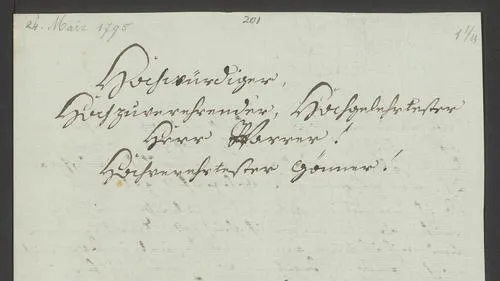 24. März 1795
201
Hochwürdiger,
Hochzuverehrender, Hochgelehrtester
Herr Pfarrer!
Hochverehrtester Gönner!